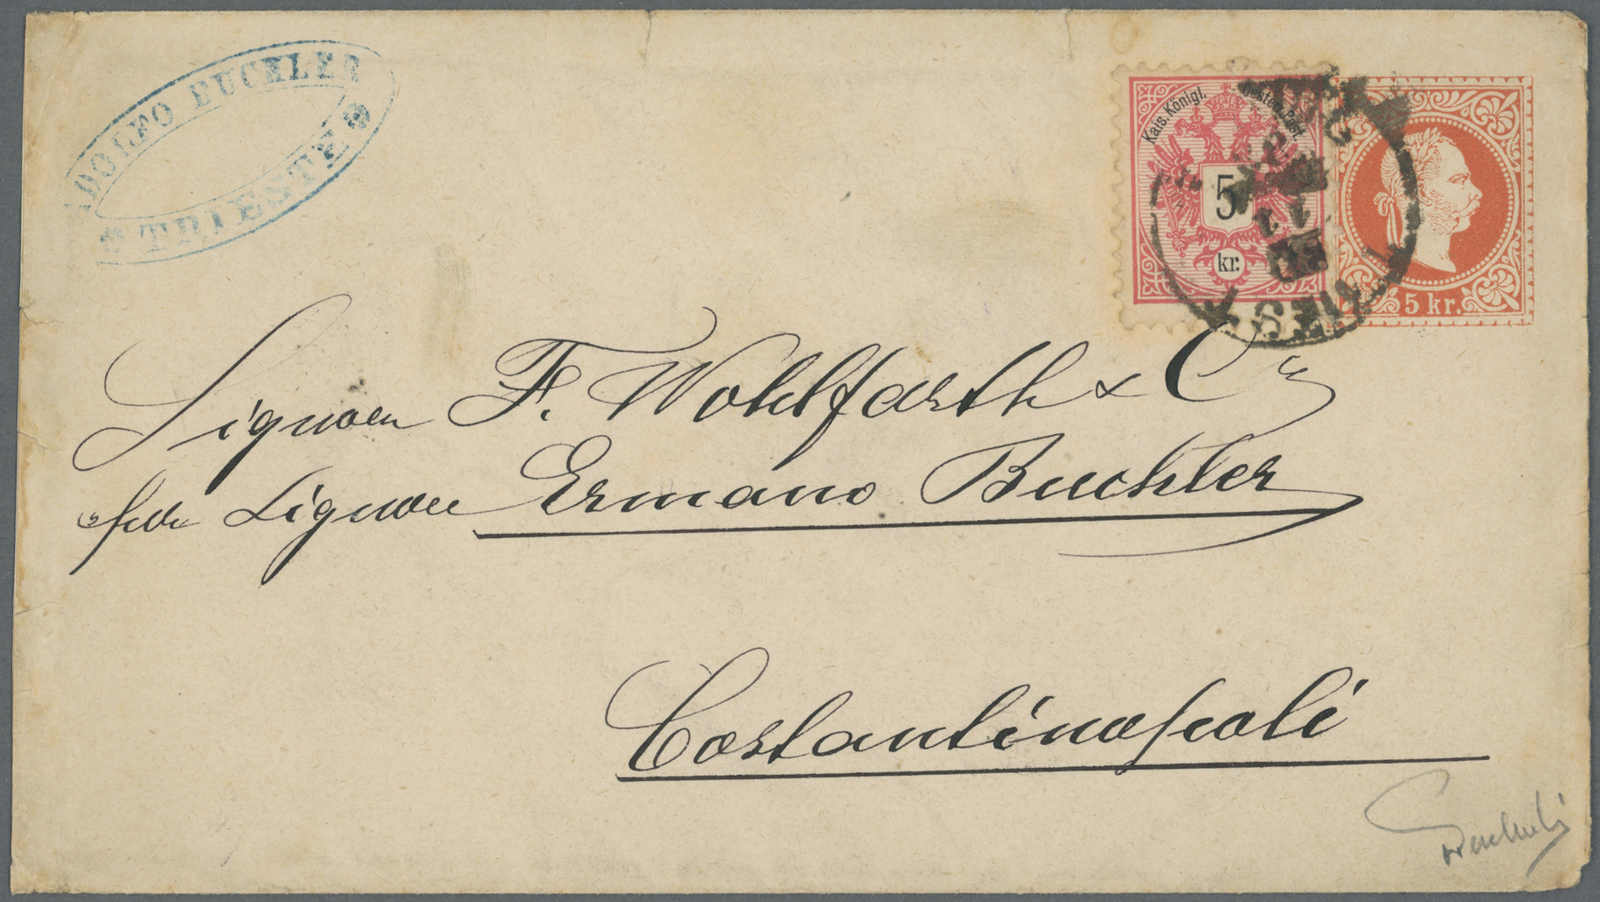 ADOLFO BUCHLER
* TRIESTE *
Kais. Königl.
5
kr.
5 kr.
TRIEST
Signori F. Wohlfarth & Cie
per Signore Ermano Buchler
Costantinopoli